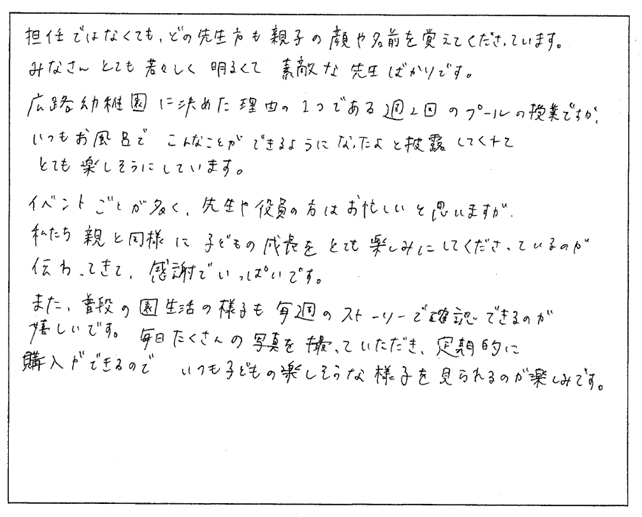 担任ではなくても、どの先生方も親子の顔や名前を覚えてくださっています。
みなさんとても若々しく明るくて素敵な先生ばかりです。
広路幼稚園に決めた理由の1つである週2回のプールの授業ですが、
いつもお風呂でこんなことができるようになったよと披露してくれて
とても楽しそうにしています。
イベントごとが多く、先生や役員の方はお忙しいと思いますが、
私たち親と同様に子どもの成長をとても楽しみにしてくださっているのが
伝わってきて、感謝でいっぱいです。
また、普段の園生活の様子も毎週のストーリーで確認できるのが
嬉しいです。毎日たくさんの写真を撮っていただき、定期的に
購入ができるのでいつも子どもの楽しそうな様子を見られるのが楽しみです。